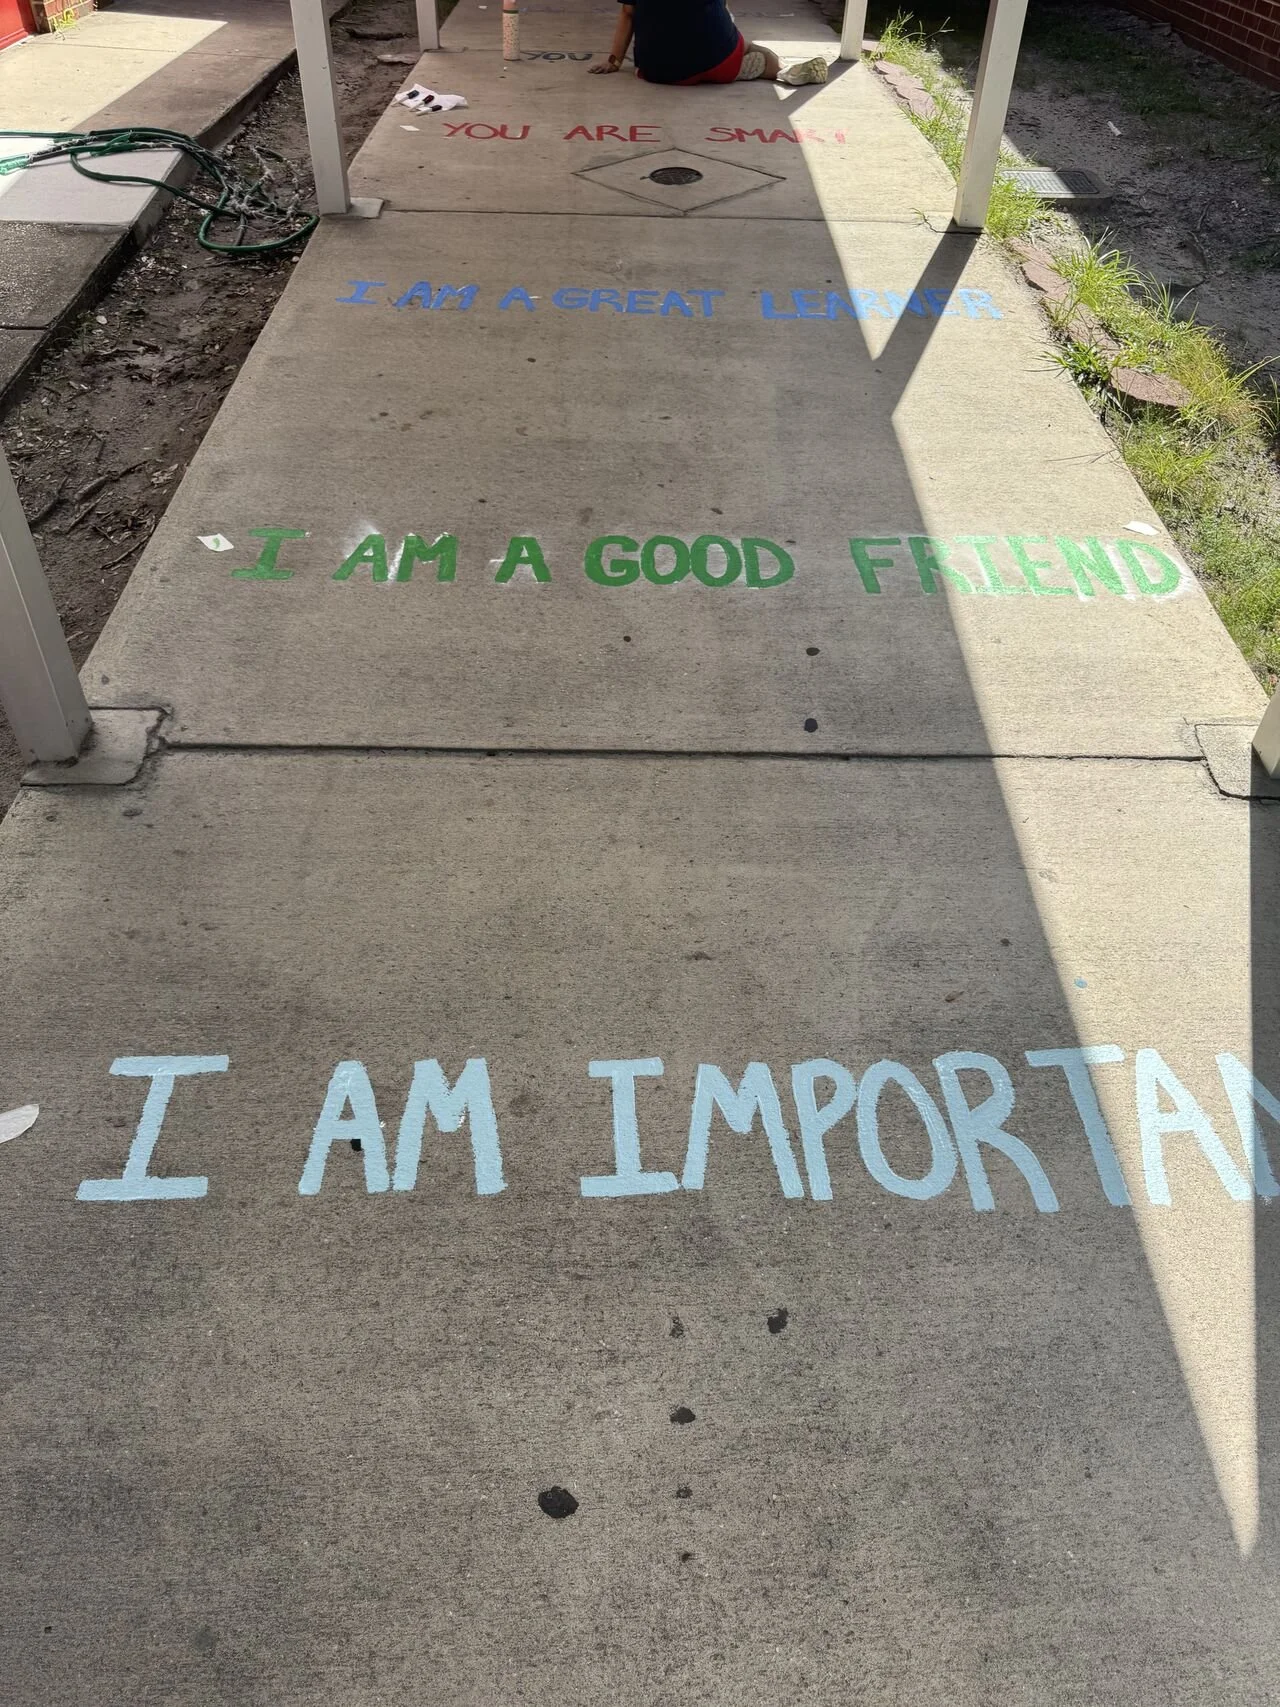 YOU
YOU ARE SMART
I AM A GREAT LEARNER
I AM A GOOD FRIEND
I AM IMPORTAN